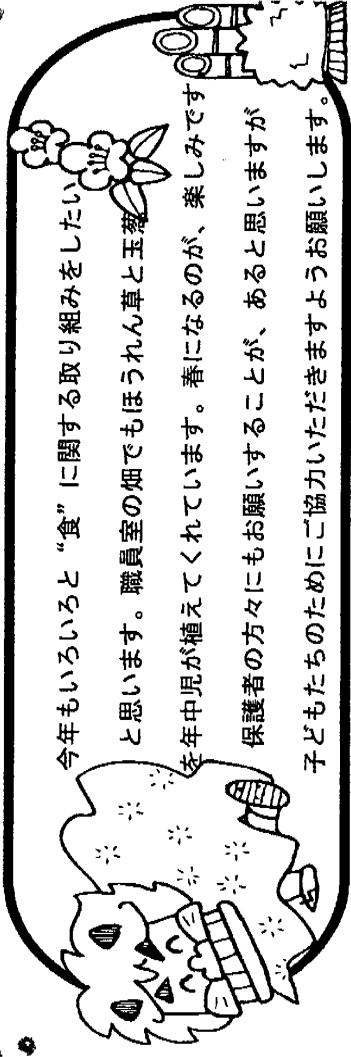 今年もいろいろと“食”に関する取り組みをしたい
と思います。職員室の畑でもほうれん草と玉葱
を年中児が植えてくれています。春になるのが、楽しみです
保護者の方々にもお願いすることが、あると思いますが
子どもたちのためにご協力いただきますようお願いします。